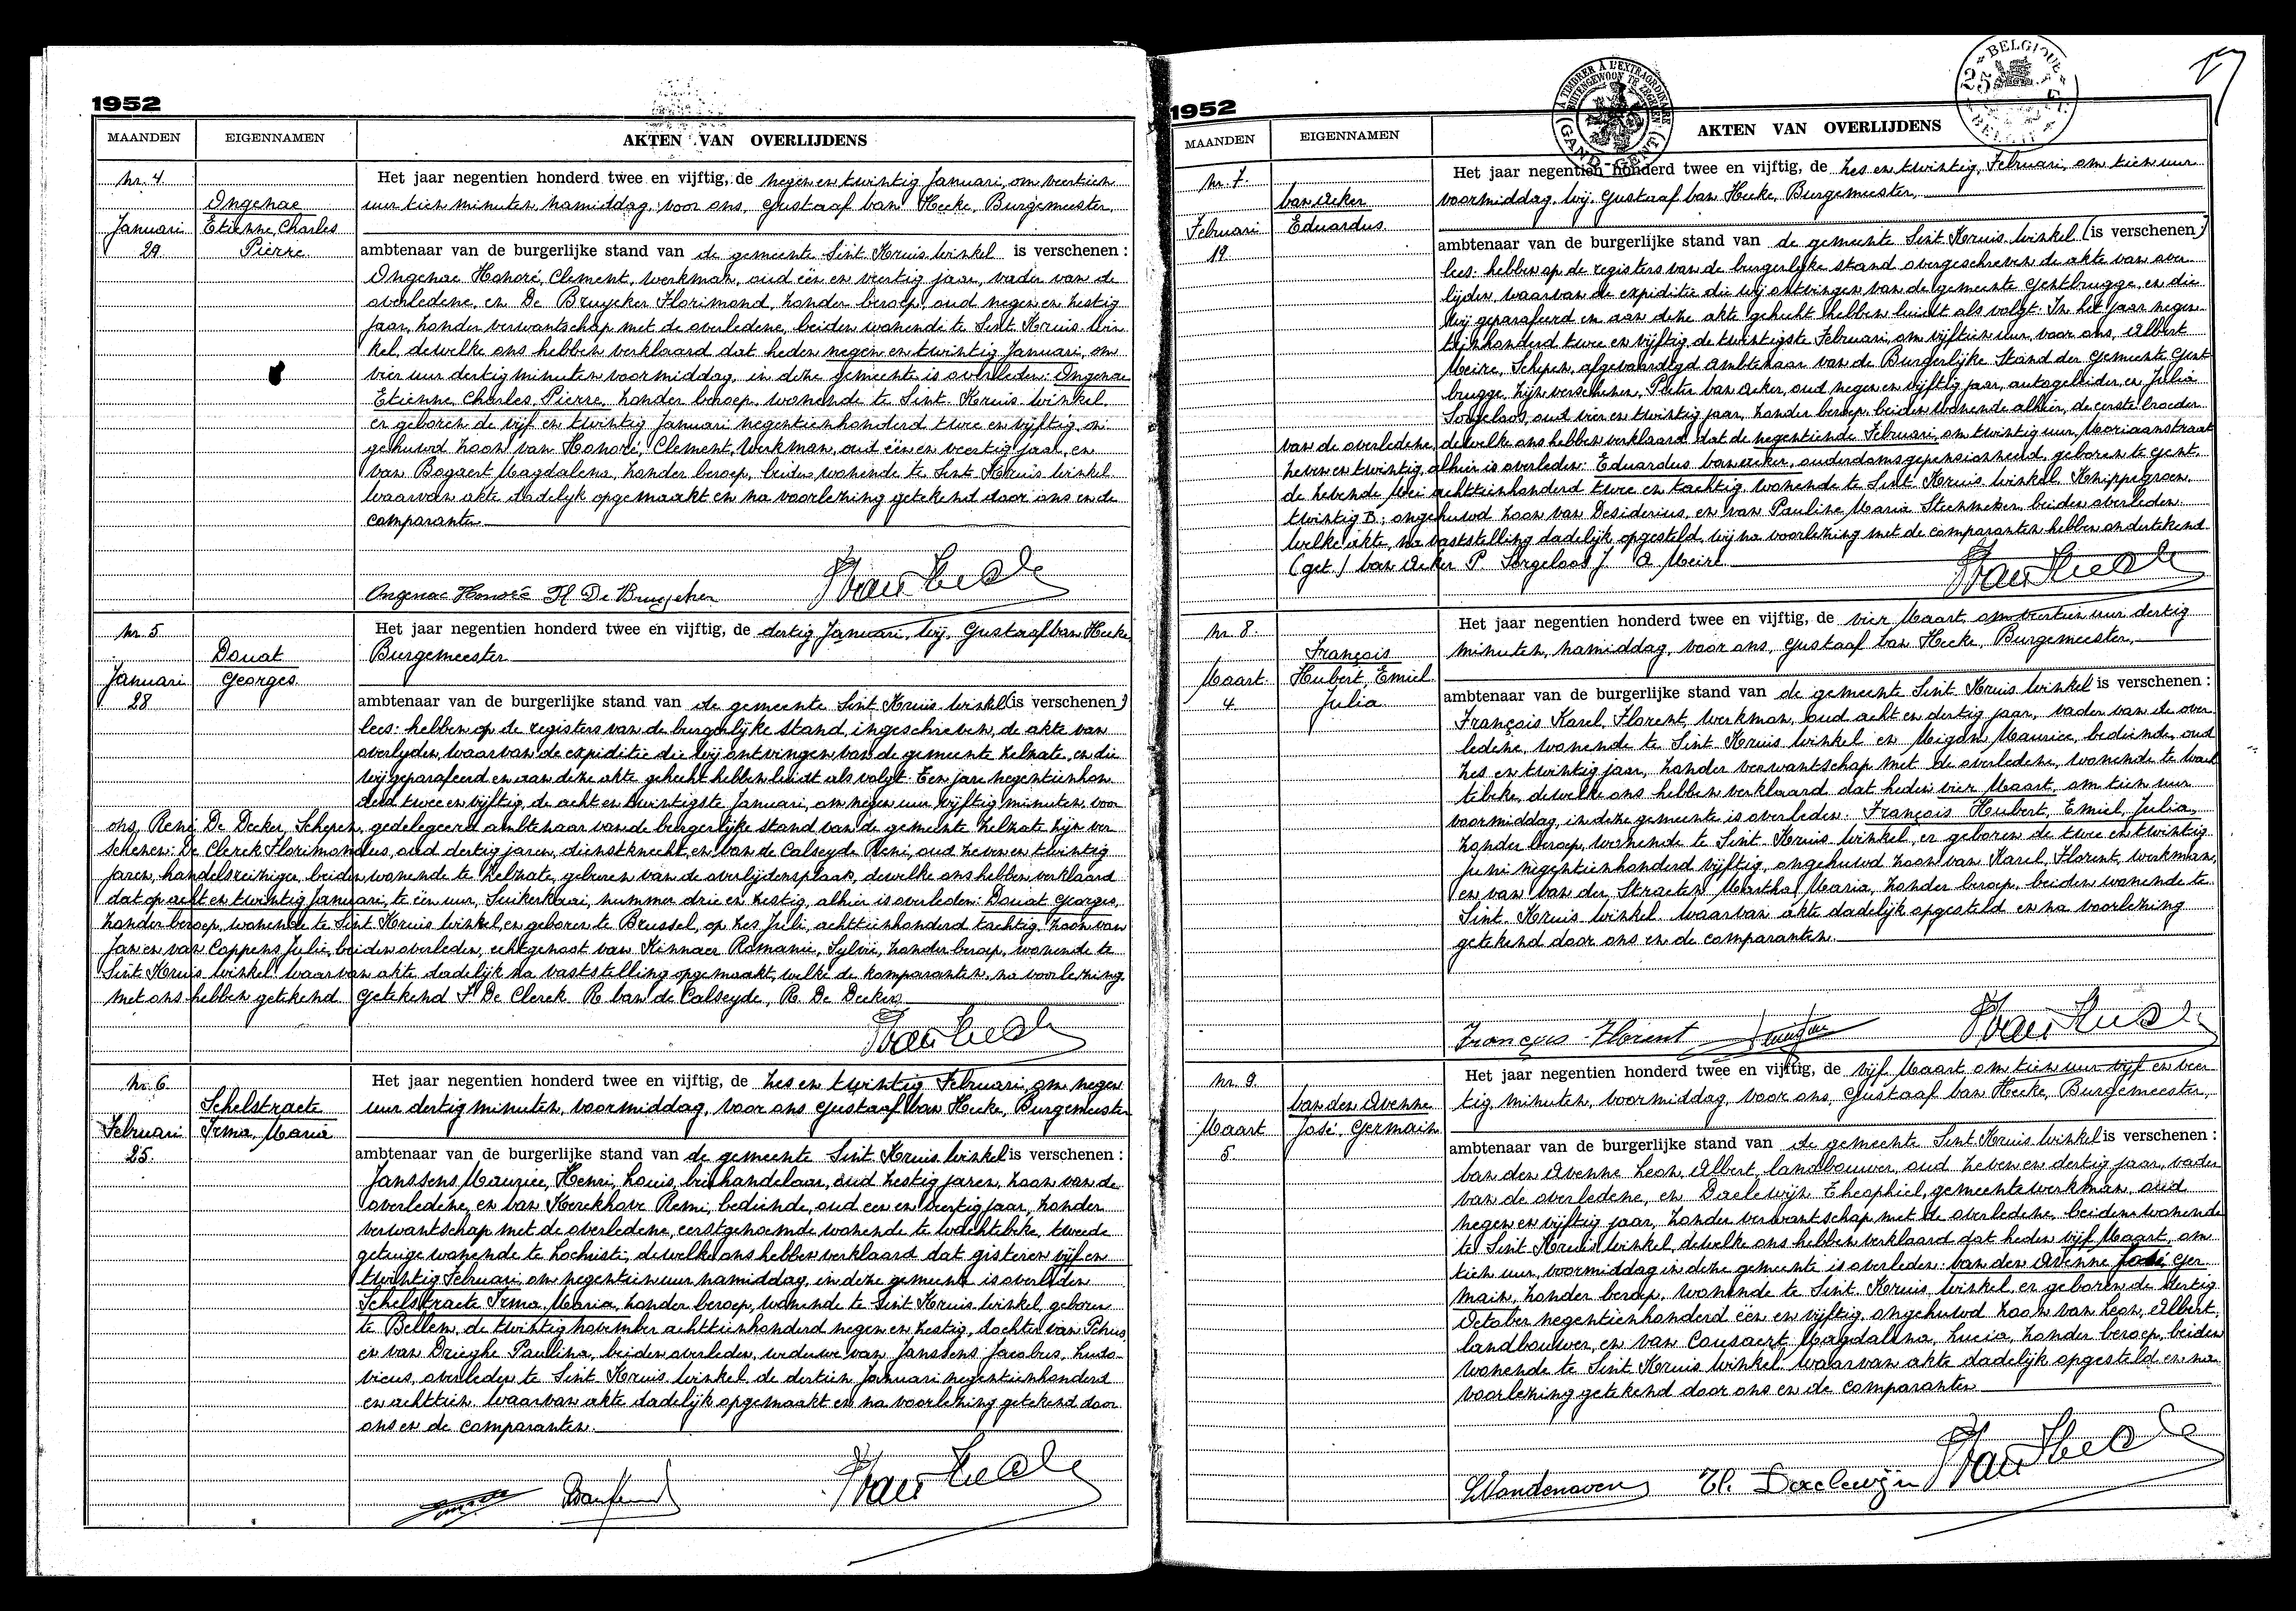 1952
MAANDEN EIGENNAMEN AKTEN VAN OVERLIJDENS
Nr. 4. Het jaar negentien honderd twee en vijftig, de negen en twintig Januari, om veertien
Ongenae uur tien minuten namiddag, voor ons, Gustaaf Van Hecke, Burgemeester,
Januari Etienne, Charles
29 Pierre. ambtenaar van de burgerlijke stand van de gemeente Sint Kruis Winkel is verschenen :
Ongenae Honoré, Clement, werkman, oud één en veertig jaar, vader van de
overledene, en De Bruycker Florimond, zonder beroep, oud negen en zestig
jaar, zonder verwantschap met de overledene, beiden wonende te Sint Kruis Win
kel, dewelke ons hebben verklaard dat heden negen en twintig Januari, om
vier uur dertig minuten voormiddag, in deze gemeente is overleden: Ongenae
Etienne, Charles, Pierre, zonder beroep, wonende te Sint Kruis Winkel,
er geboren de vijf en twintig Januari negentienhonderd twee en vijftig, on
gehuwd, zoon van Honoré, Clement, werkman, oud één en veertig jaar, en
van Bogaert Magdalena, zonder beroep, beiden wonende te Sint Kruis Winkel
Waarvan akte dadelijk opgemaakt en na voorlezing getekend door ons en de
comparanten.
Ongenae Honoré Fl De Bruycker
Nr. 5 Het jaar negentien honderd twee en vijftig, de dertig Januari, Wij, Gustaaf Van Hecke
Donat Burgemeester
Januari Georges.
28 ambtenaar van de burgerlijke stand van de gemeente Sint Kruis Winkel (is verschenen)
lees: hebben op de registers van de burgerlijke stand, ingeschreven, de akte van
overlijden, waarvan de expeditie die wij ontvingen van de gemeente Zelzate, en die
wij geparafeerd en aan deze akte gehecht hebben luidt als volgt: Een jare negentienhon
derd twee en vijftig, de acht en twintigste Januari, om negen uur vijftig minuten, voor
ons, René De Decker, Schepen, gedelegeerd ambtenaar van de burgerlijke stand van de gemeente Zelzate zijn ver
schenen: De Clerck Florimondus, oud dertig jaren, dienstknecht, en Van de Calseyde Remi, oud zeven en twintig
jaren, handelsreiziger, beiden wonende te Zelzate, geburen van de overlijdensplaats, dewelke ons hebben verklaard
dat op acht en twintig Januari, te één uur, Suikerkaai, nummer drie en zestig, alhier is overleden: Donat Georges,
zonder beroep, wonende te Sint Kruis Winkel en geboren te Brussel, op zes Juli, achttienhonderd tachtig, zoon van
Jan en van Coppens Julie, beiden overleden, echtgenoot van Kinnaer Romanie, Sylvie, zonder beroep, wonende te
Sint Kruis Winkel. Waarvan akte dadelijk na vaststelling opgemaakt, welke de komparanten, na voorlezing
met ons hebben getekend. Getekend F. De Clerck R. Van de Calseyde, R. De Decker
Nr. 6. Het jaar negentien honderd twee en vijftig, de zes en twintig Februari, om negen
Schelstraete uur dertig minuten, voormiddag, voor ons Gustaaf Van Hecke, Burgemeester
Februari Irma, Maria
25. ambtenaar van de burgerlijke stand van de gemeente Sint Kruis Winkel is verschenen :
Janssens Maurice, Henri, Louis, bierhandelaar, oud zestig jaren, zoon van de
overledene, en Van Kerckhove Remi, bediende, oud een en veertig jaar, zonder
verwantschap met de overledene, eerstgenoemde wonende te Wachtebeke, tweede
getuige wonende te Lochristi, dewelke ons hebben verklaard dat gisteren vijf en
twintig Februari, om negentien uur namiddag, in deze gemeente is overleden
Schelstraete Irma, Maria, zonder beroep, wonende te Sint Kruis Winkel, geboren
te Bellem, de twintig november achttienhonderd negen en zestig, dochter van Petrus
en van Drieghe Paulina, beiden overleden, weduwe van Janssens Jacobus, Ludo-
vicus, overleden te Sint Kruis Winkel de dertien Januari negentienhonderd
en achttien. Waarvan akte dadelijk opgemaakt en na voorlezing getekend door
ons en de comparanten.
1952
BELGIQUE
BELGIË
25
À TIMBRER À L'EXTRAORDINAIRE
BUITENGEWOON TE ZEGELEN
GAND - GENT
17
MAANDEN EIGENNAMEN AKTEN VAN OVERLIJDENS
Nr. 7. Het jaar negentien honderd twee en vijftig, de zes en twintig, Februari, om tien uur
Van Acker voormiddag, Wij, Gustaaf Van Hecke, Burgemeester,
Februari Eduardus.
19 ambtenaar van de burgerlijke stand van de gemeente Sint Kruis Winkel (is verschenen)
lees: hebben op de registers van de burgerlijke stand overgeschreven de akte van over
lijden, waarvan de expeditie die wij ontvingen van de gemeente Gentbrugge, en die
wij geparafeerd en aan deze akte gehecht hebben luidt als volgt: In het jaar negen
tienhonderd twee en vijftig de twintigste Februari, om vijftien uur, voor ons, Albert
Meire, Schepen, afgevaardigd Ambtenaar van de Burgerlijke Stand der Gemeente Gent
brugge, zijn verschenen, Pieter Van Acker, oud negen en vijftig jaar, autogeleider, en Julia
Sorgeloos, oud vier en twintig jaar, zonder beroep, beiden wonende alhier, de eerste broeder
van de overledene, dewelke ons hebben verklaard, dat de negentiende Februari, om twintig uur, Moriaanstraat
zeven en twintig, alhier is overleden: Eduardus Van Acker, ouderdomsgepensionneerd, geboren te Gent,
de zevende Mei achttienhonderd twee en tachtig, wonende te Sint Kruis Winkel, Knippegroen,
twintig B; ongehuwd zoon van Desiderius, en van Pauline Maria Steenmeken, beiden overleden
Welke akte, na vaststelling dadelijk opgesteld, wij na voorlezing met de comparanten hebben ondertekend.
(get.) Van Acker P. Sorgeloos J. A. Meire.
Nr. 8. Het jaar negentien honderd twee en vijftig, de vier Maart, om veertien uur dertig
François minuten, namiddag, voor ons, Gustaaf Van Hecke, Burgemeester,
Maart. Hubert, Emiel
4. Julia. ambtenaar van de burgerlijke stand van de gemeente Sint Kruis Winkel is verschenen :
François Karel, Florent, werkman, oud acht en dertig jaar, vader van de over
ledene, wonende te Sint Kruis Winkel en Migom Maurice, bediende, oud
zes en twintig jaar, zonder verwantschap met de overledene, wonende te Wach
tebeke, dewelke ons hebben verklaard dat heden vier Maart, om tien uur
voormiddag, in deze gemeente is overleden: François Hubert, Emiel, Julia,
zonder beroep, wonende te Sint Kruis Winkel, er geboren de twee en twintig
Juni negentienhonderd vijftig, ongehuwd zoon van Karel, Florent, werkman,
en van Van der Straeten Martha, Maria, zonder beroep, beiden wonende te
Sint Kruis Winkel. Waarvan akte dadelijk opgesteld en na voorlezing
getekend door ons en de comparanten.
François Florent
Nr. 9. Het jaar negentien honderd twee en vijftig, de vijf Maart om tien uur vijf en veer
Van den Avenne tig minuten, voormiddag, voor ons, Gustaaf Van Hecke, Burgemeester,
Maart José, Germain
5. ambtenaar van de burgerlijke stand van de gemeente Sint Kruis Winkel is verschenen :
Van den Avenne Leon, Albert, landbouwer, oud zeven en dertig jaar, vader
van de overledene, en Daelewijn Theophiel, gemeentewerkman, oud
negen en vijftig jaar, zonder verwantschap met de overledene, beiden wonende
te Sint Kruis Winkel, dewelke ons hebben verklaard dat heden vijf Maart, om
tien uur, voormiddag in deze gemeente is overleden: Van den Avenne José Ger
main, zonder beroep, wonende te Sint Kruis Winkel, er geboren de dertig
October negentienhonderd één en vijftig, ongehuwd zoon van Leon, Albert,
landbouwer, en van Cousaert Magdalena, Lucia, zonder beroep, beiden
wonende te Sint Kruis Winkel. Waarvan akte dadelijk opgesteld en na
voorlezing getekend door ons en de comparanten
L Vandenaven Th. Daelewijn